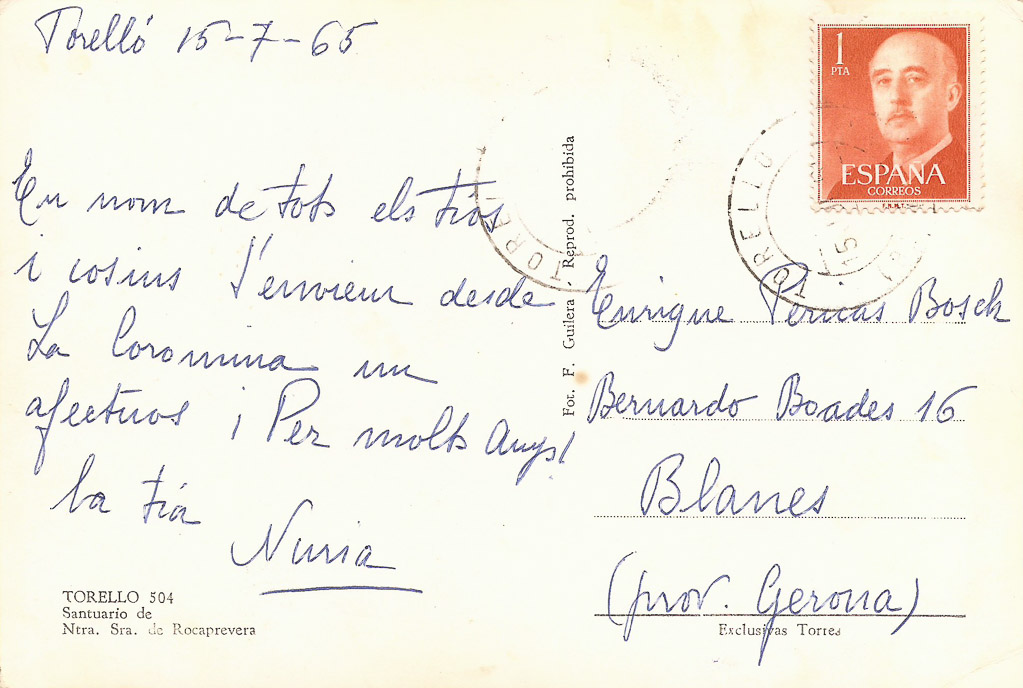 Torelló 15-7-65
En nom de tots els tios
i cosins t'envieur desde
La Coromina un
afectuos i Per molts anys!
la tia
Nuria
TORELLO 504
Santuario de
Ntra. Sra. de Rocaprevera
Fot. F. Guilera - Reprod. prohibida
1
PTA
ESPAÑA
CORREOS
F.N.M.T.
TORELLO
15
TORE
Enrique Pernas Bosch
Bernardo Boades 16
Blanes
(prov. Gerona)
Exclusivas Torres